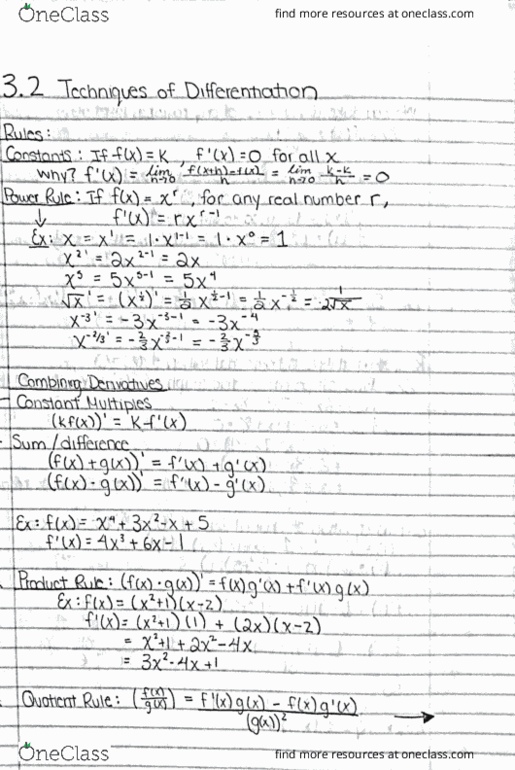 OneClass find more resources at oneclass.com
3.2 Techniques of Differentiation
Rules:
Constants: If f(x)=K, f'(x)=0 for all x
Why? f'(x)= lim n→0 f(x+h)-f(x)/h = lim n→0 k-k/h = 0
Power Rule: If f(x)=xʳ, for any real number r,
↓ f'(x)=rxʳ⁻¹
Ex: x = x' = 1·x¹⁻¹ = 1·x⁰ = 1
x²' = 2x²⁻¹ = 2x
x⁵ = 5x⁵⁻¹ = 5x⁴
√x' = (x^½)' = ½x^(½-1) = ½x^(-½) = 1/2√x
x⁻³' = -3x⁻³⁻¹ = -3x⁻⁴
Combining Derivatives
Constant Multiples
(kf(x))' = K·f'(x)
Sum/difference
(f(x)+g(x))' = f'(x)+g'(x)
(f(x)-g(x))' = f'(x)-g'(x)
Ex: f(x)= x⁴+3x²-x+5
f'(x)=4x³+6x-1
Product Rule: (f(x)·g(x))' = f(x)g'(x)+f'(x)g(x)
Ex: f(x)=(x²+1)(x-2)
f'(x)=(x²+1)(1)+(2x)(x-2)
= x²+1+2x²-4x
= 3x²-4x+1
Quotient Rule: (f(x)/g(x)) = f'(x)g(x)-f(x)g'(x)/(g(x))² →
OneClass find more resources at oneclass.com